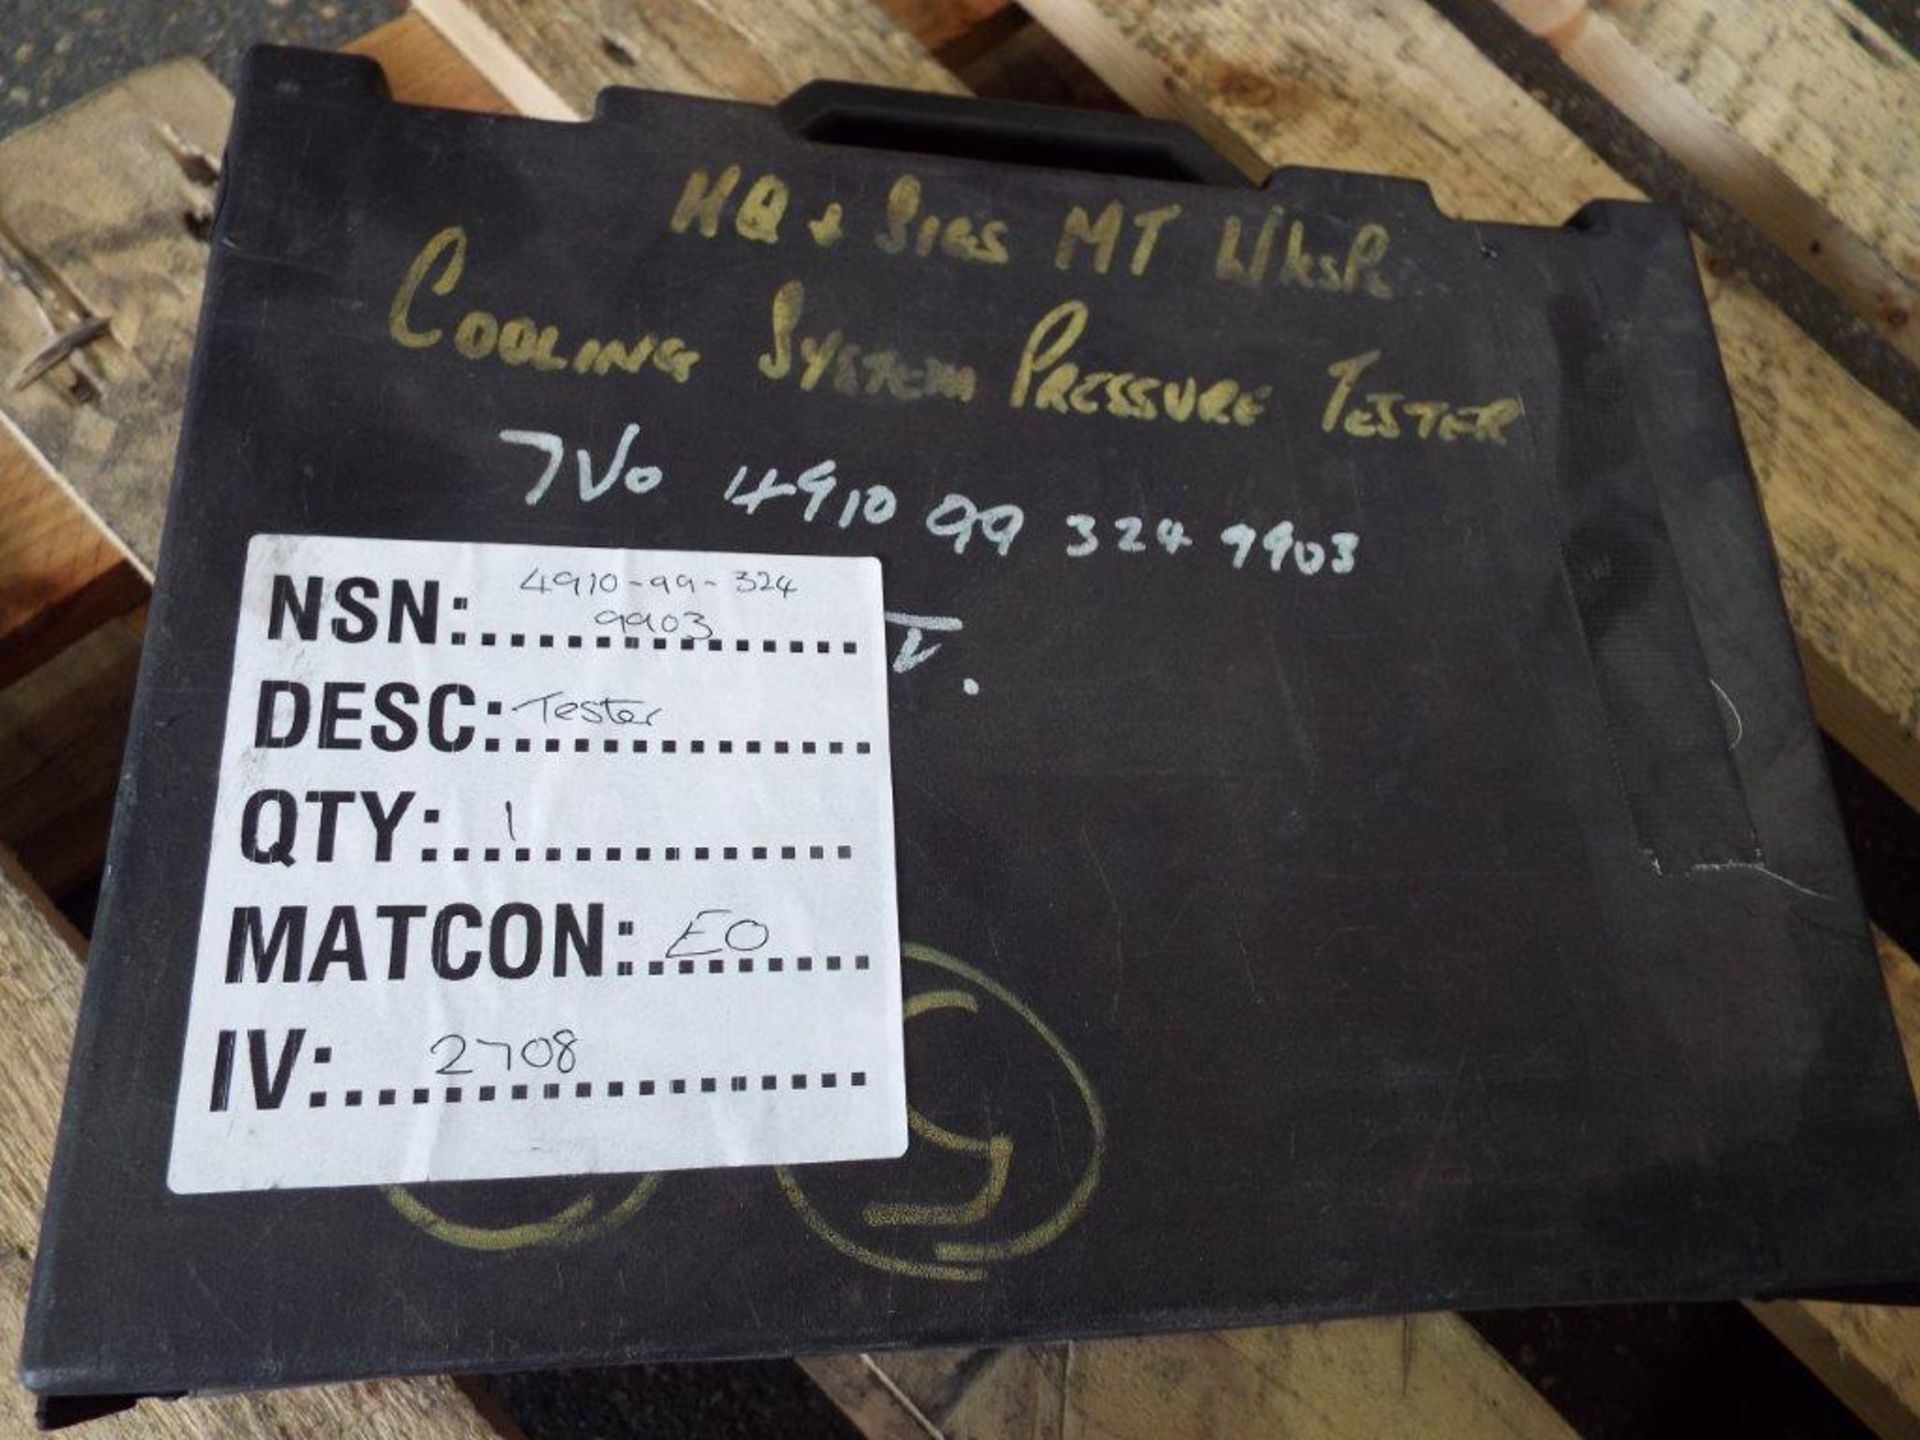 HQ + Sigs MT Wksp
COOLING SYSTEM PRESSURE TESTER
7V0 4910 99 324 9903
V.
NSN: 4910-99-324
9903
DESC: Tester
QTY: 1
MATCON: E0
IV: 2708
5